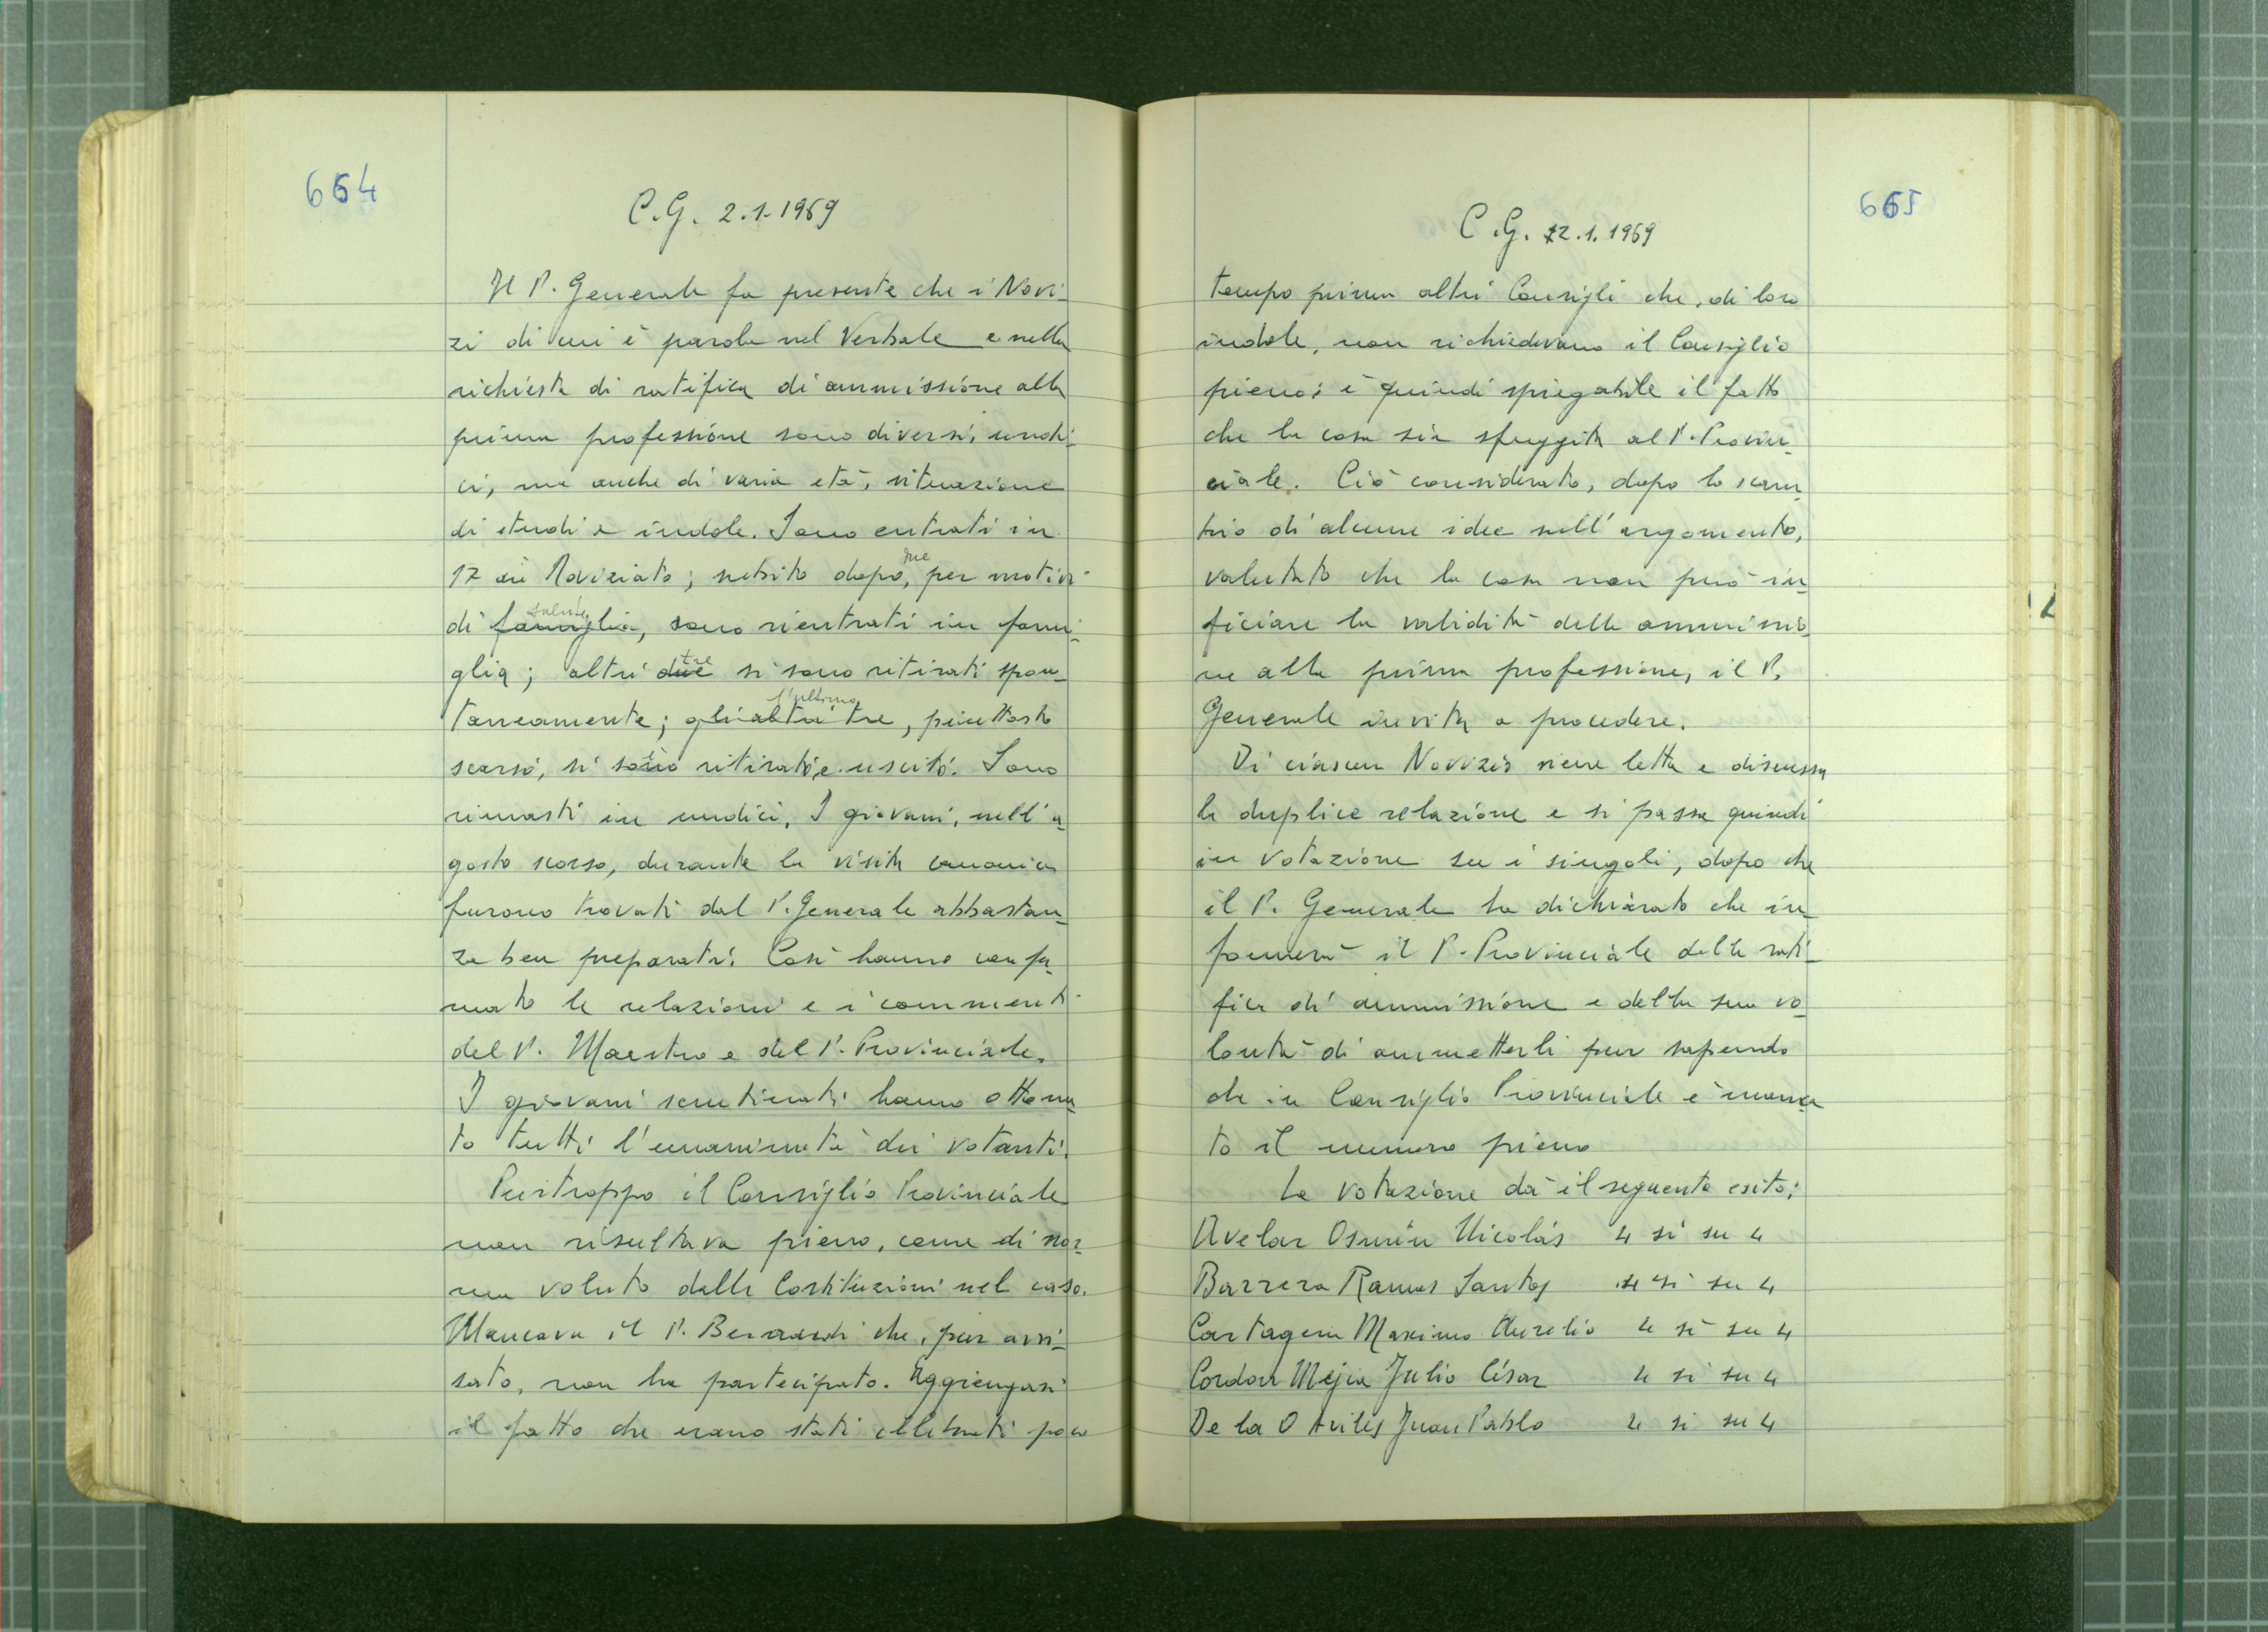 664
C.G. 2.1.1969
Il P. Generale fa presente che i Novi-
zi di cui è parola nel Verbale e nella
richiesta di ratifica di ammissione alla
prima professione sono diversi, undi-
ci, ma anche di varia età, situazione
di studi e indole. Sono entrati in
17 in Noviziato; subito dopo, due per motivi
di famiglia salute, sono rientrati in fami-
glia; altri due tre si sono ritirati spon-
taneamente; gli altri tre l'ultimo, piuttosto
scarso, si è ritirato e uscito. Sono
rimasti in undici. I giovani, nell'a-
gosto scorso, durante la visita canonica
furono trovati dal P. Generale abbastan-
za ben preparati. Così hanno confer-
mato le relazioni e i commenti
del P. Maestro e del P. Provinciale.
I giovani scrutinati hanno ottenu-
to tutti l'unanimità dei votanti.
Purtroppo il Consiglio Provinciale
non risultava pieno, come di nor-
ma voluto dalle Costituzioni nel caso.
Mancava il P. Berardi che, pur avvi-
sato, non ha partecipato. Aggiungasi
il fatto che erano stati celebrati poco
665
C.G. 12.1.1969
tempo prima altri Consigli che, di loro
indole, non richiedevano il Consiglio
pieno; è quindi spiegabile il fatto
che la cosa sia sfuggita al P. Provin-
ciale. Ciò considerato, dopo lo scam-
bio di alcune idee sull'argomento,
valutato che la cosa non può in-
ficiare la validità della ammissio-
ne alla prima professione, il P.
Generale invita a procedere.
Di ciascun Novizio viene letta e discussa
la duplice relazione e si passa quindi
in votazione su i singoli, dopo che
il P. Generale ha dichiarato che in-
formerà il P. Provinciale della rati-
fica di ammissione e della sua vo-
lontà di ammetterli pur sapendo
che in Consiglio Provinciale è manca-
to il numero pieno
La votazione dà il seguente esito:
Avelar Osmín Nicolás 4 sì su 4
Barrera Ramos Santos 4 sì su 4
Cartagena Maximo Aurelio 4 sì su 4
Cordon Mejia Julio César 4 sì su 4
De la O Avilés Juan Pablo 4 sì su 4